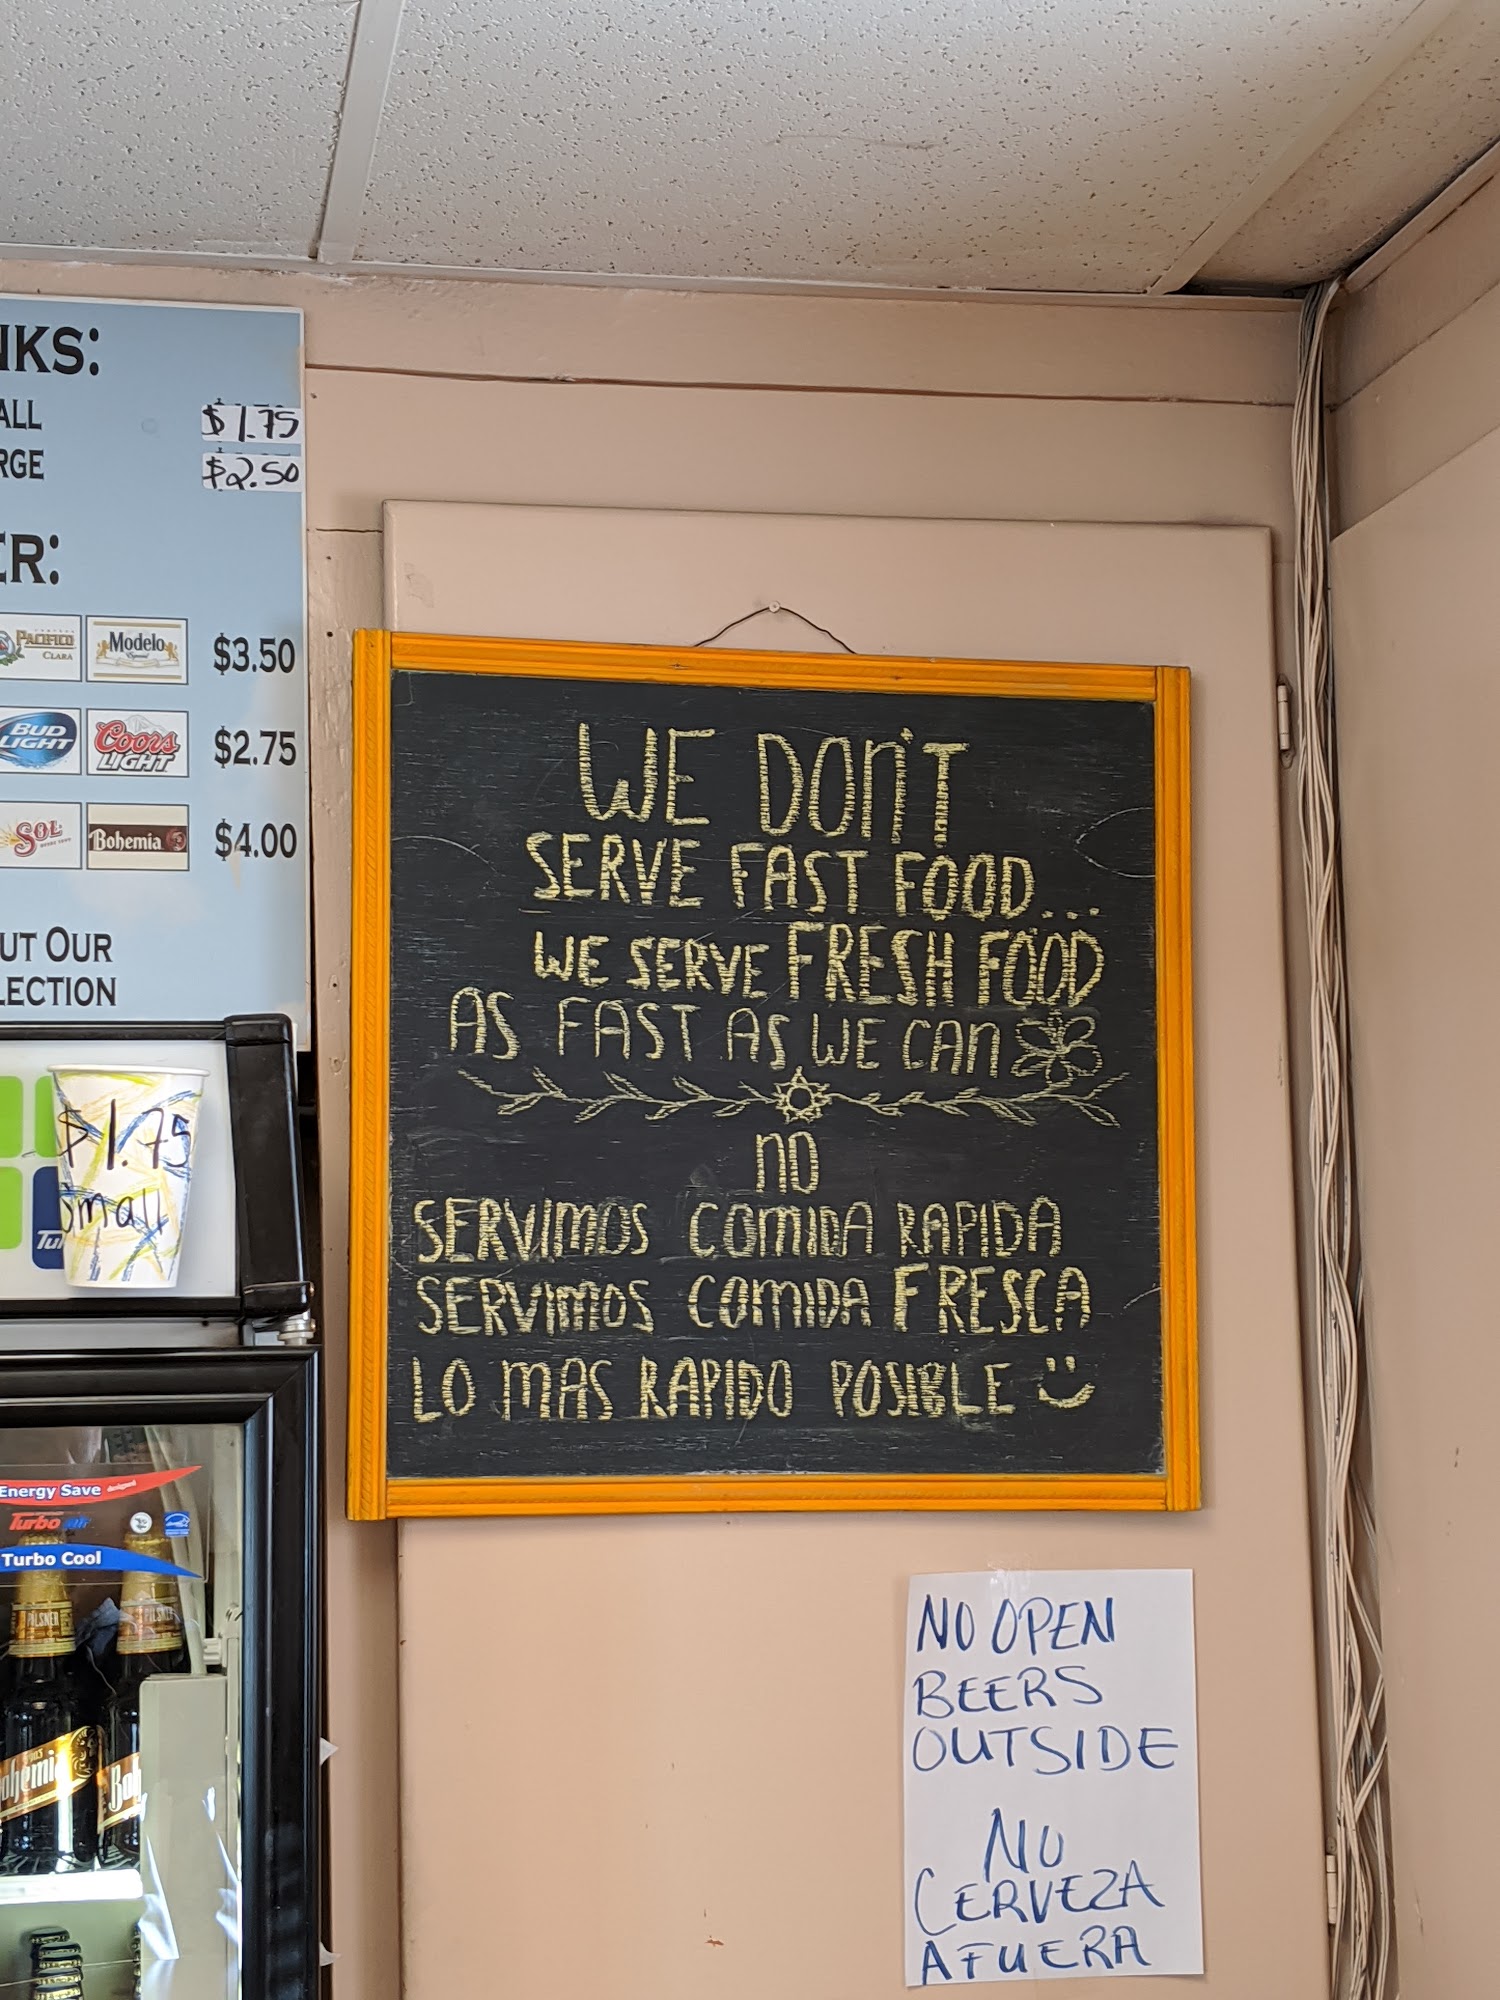 $1.75
$2.50
PACIFICO
CLARA
Modelo
Especial
$3.50
BUD
LIGHT
Coors
LIGHT
$2.75
SOL
Bohemia
$4.00
OUR
$1.75
Small
Energy Save
Turbo air
Turbo Cool
PILSNER
WE DON'T
SERVE FAST FOOD...
WE SERVE FRESH FOOD
AS FAST AS WE CAN
NO
SERVIMOS COMIDA RAPIDA
SERVIMOS COMIDA FRESCA
LO MAS RAPIDO POSIBLE
NO OPEN
BEERS
OUTSIDE
NO
CERVEZA
AFUERA